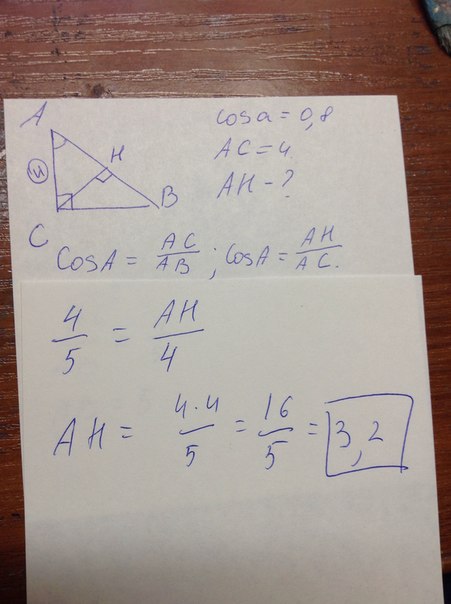 A
H
B
C
4
cos a = 0,8
AC = 4
AH - ?
CosA = AC/AB ; cosA = AH/AC.
4/5 = AH/4
AH = 4·4/5 = 16/5 = 3,2